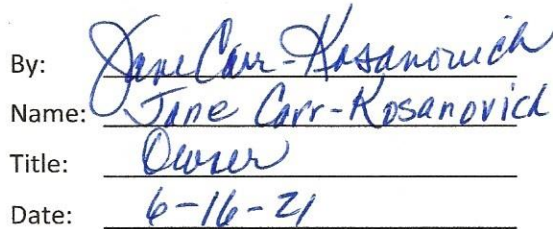 By: Jane Carr-Kosanovich
Name: Jane Carr-Kosanovich
Title: Owner
Date: 6-16-21